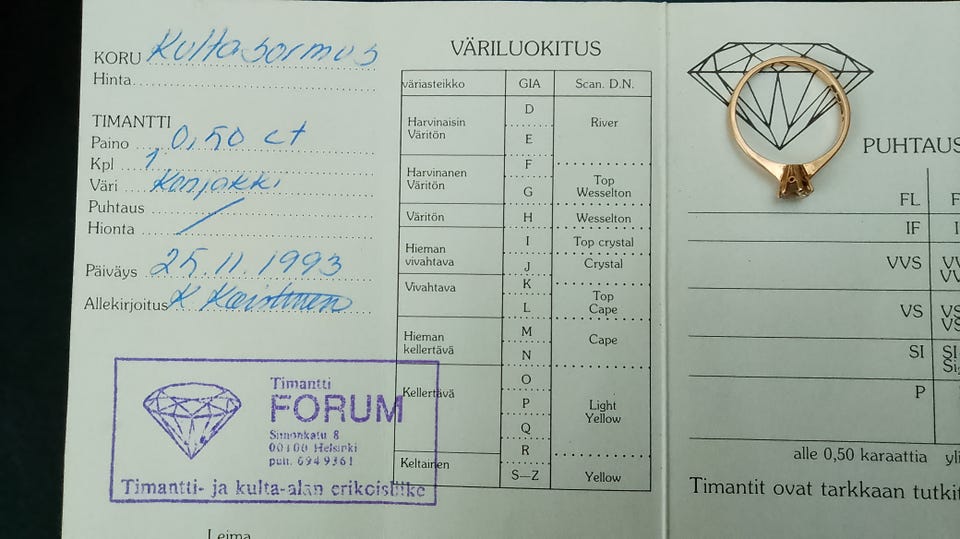 KORU Kultasormus
Hinta
TIMANTTI
Paino 0,50 ct
Kpl 1
Väri Konjakki
Puhtaus
Hionta
Päiväys 25.11.1993
Allekirjoitus K
Timantti
FORUM
Simonkatu 8
00100 Helsinki
puh. 6949361
Timantti- ja kulta-alan erikoisliike
Leima
VÄRILUOKITUS
väriasteikko GIA Scan. D.N.
Harvinaisin Väritön D E River
Harvinanen Väritön F G Top Wesselton
Väritön H Wesselton
Hieman vivahtava I Top crystal
J Crystal
Vivahtava K L Top Cape
Hieman kellertävä M N Cape
Kellertävä O P Q R Light Yellow
Keltainen S—Z Yellow
PUHTAUS
FL
IF
VVS
VS VS
SI SI
P
alle 0,50 karaattia
Timantit ovat tarkkaan